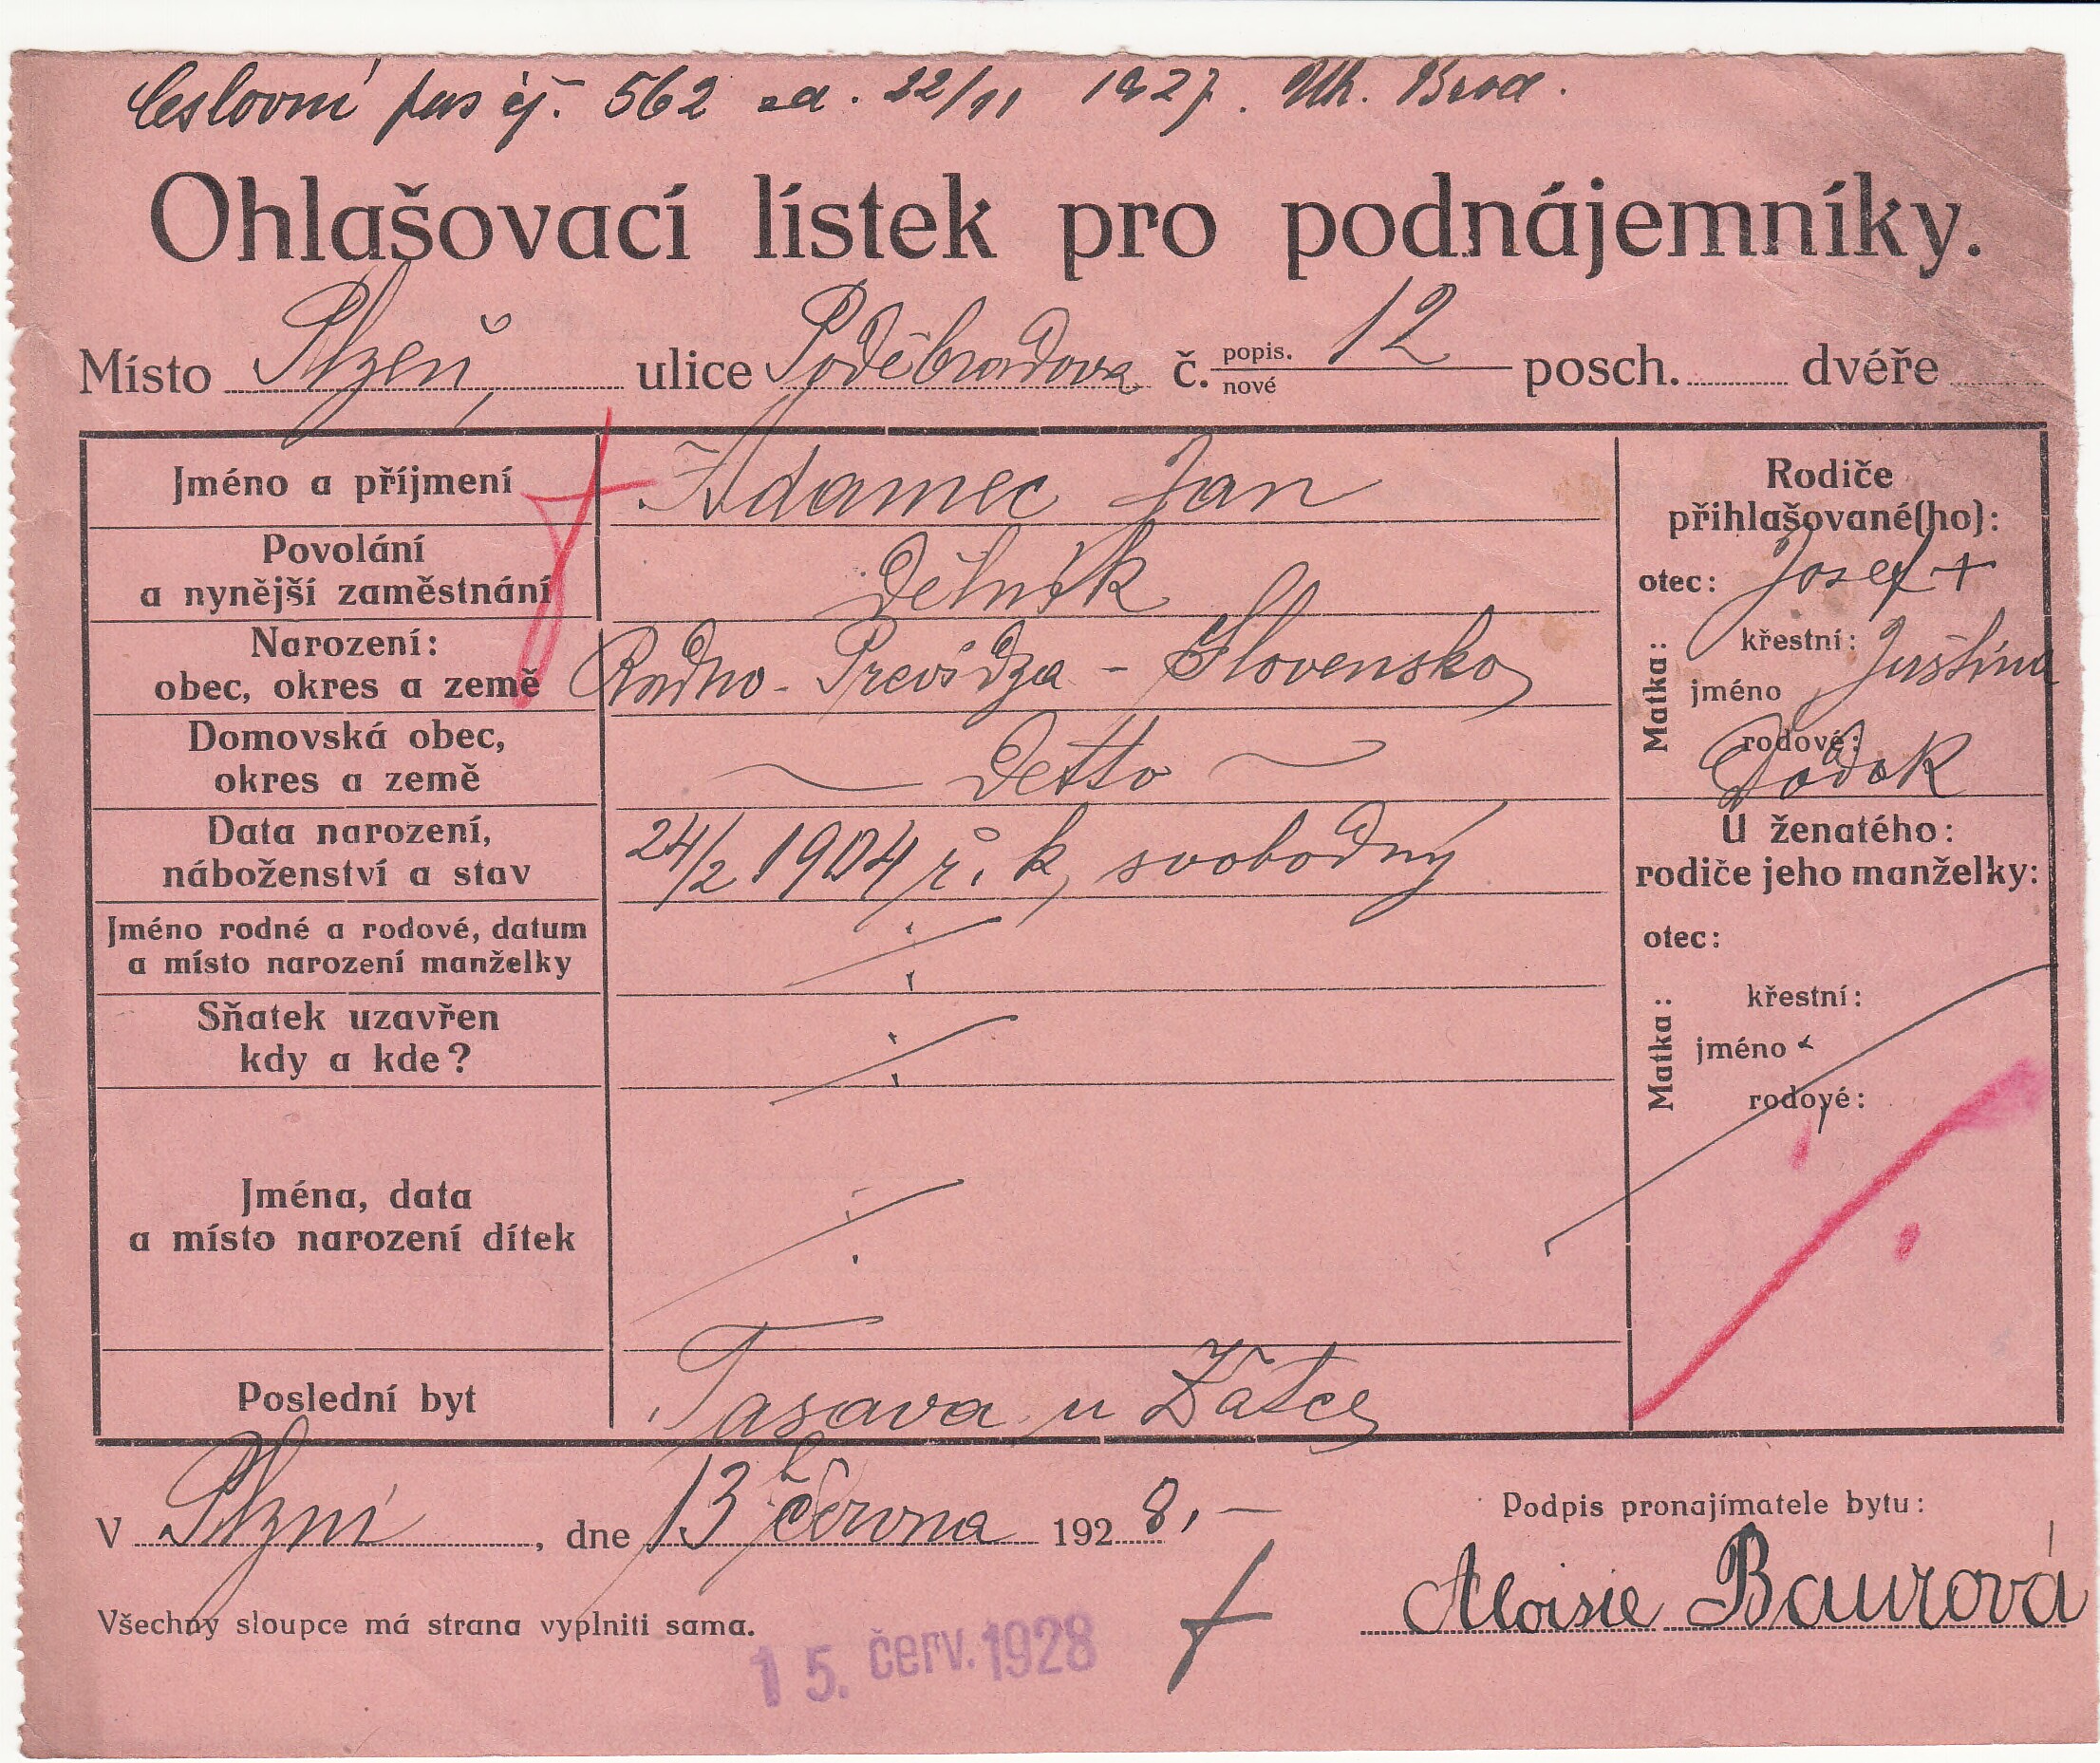 Ceslovní pas čj. 562 z d. 22/11 1927. Uh. Brod.
Ohlašovací lístek pro podnájemníky.
Místo Plzeň, ulice Poděbradova č. popis. nové 12 posch. dvéře
Jméno a příjmení Adamec Jan
Povolání
a nynější zaměstnání Dělník
Narození:
obec, okres a země Radno - Prevídza - Slovensko
Domovská obec,
okres a země — Detto —
Data narození,
náboženství a stav 24/2 1904 ř. k, svobodný
Jméno rodné a rodové, datum
a místo narození manželky
Sňatek uzavřen
kdy a kde?
Jména, data
a místo narození dítek
Poslední byt Tasava u Žatce
Rodiče
přihlašované(ho):
otec: Josef +
Matka: křestní: Juština
jméno
rodové:
U ženatého:
rodiče jeho manželky:
otec:
Matka: křestní:
jméno
rodové:
V Plzni, dne 13 června 1928.-
Podpis pronajímatele bytu:
Aloisie Baurová
Všechny sloupce má strana vyplniti sama.
15. červ. 1928